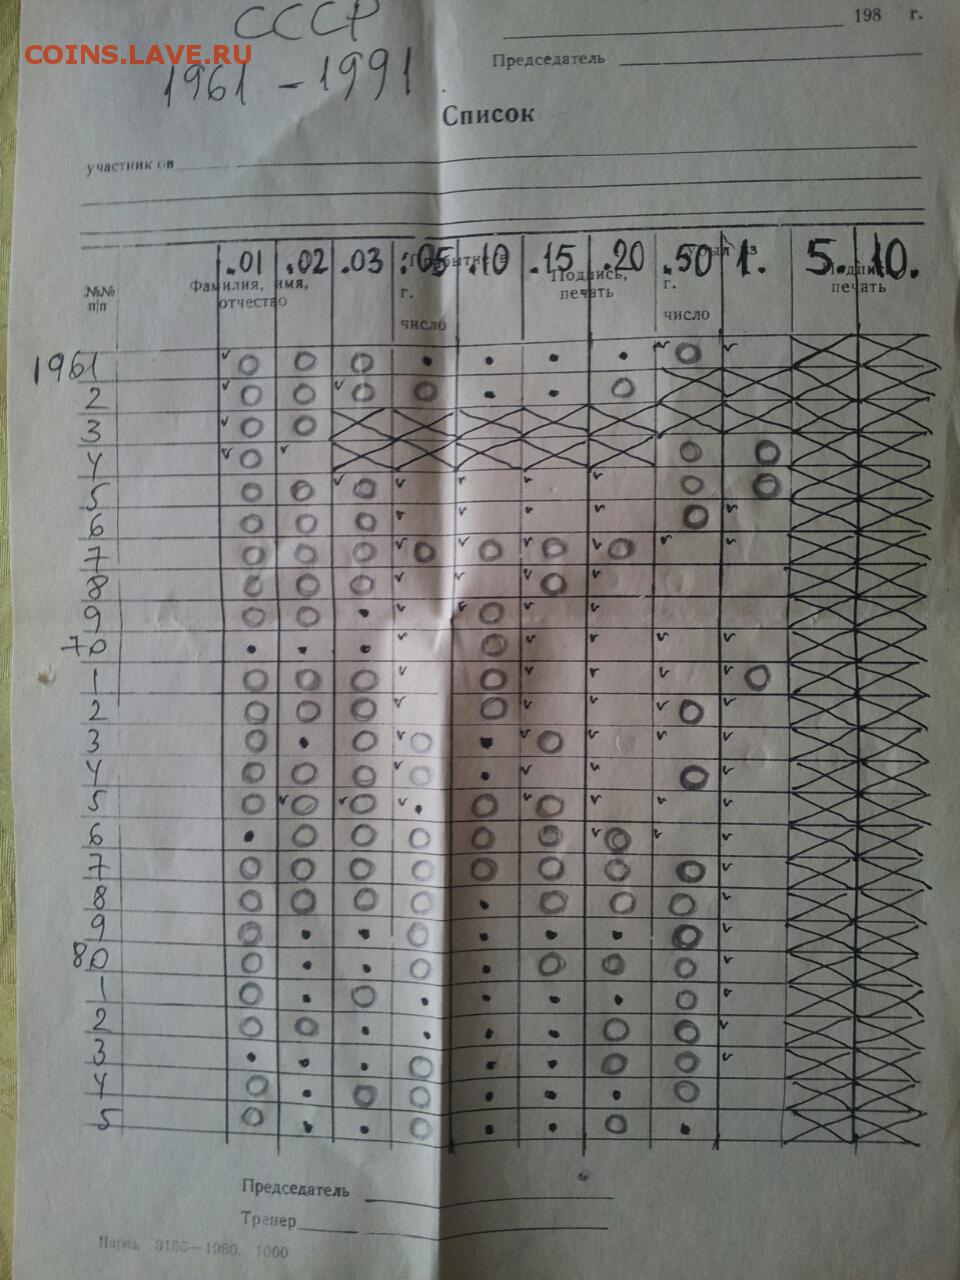 СССР
COINS.LAVE.RU
1961 - 1991
198 г.
Председатель
Список
участник ов
.01 .02 .03 .05 .10 .15 .20 .50 1. 5. 10.
№№ п/п
Фамилия, имя, отчество
г.
число
Подпись, печать
г.
число
печать
1961
2
3
4
5
6
7
8
9
70
1
2
3
4
5
6
7
8
9
80
1
2
3
4
5
Председатель
Тренер
3195—1980. 1000